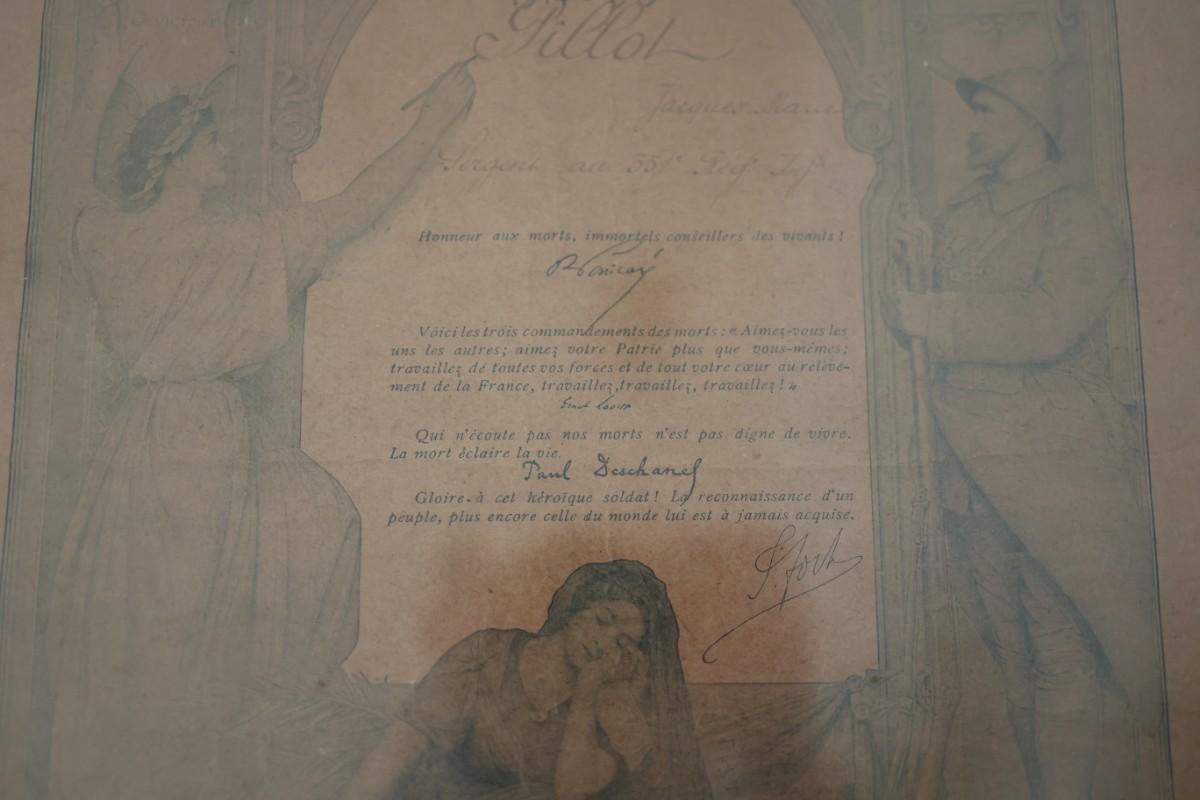 Pillot
Jacques Marie
Sergent au 351e Régt Inf.
Honneur aux morts, immortels conseillers des vivants !
R Poincaré
Voici les trois commandements des morts : « Aimez-vous les
uns les autres ; aimez votre Patrie plus que vous-mêmes ;
travaillez de toutes vos forces et de tout votre cœur au relève-
ment de la France, travaillez, travaillez, travaillez ! »
Ernest Lavisse
Qui n'écoute pas nos morts n'est pas digne de vivre.
La mort éclaire la vie.
Paul Deschanel
Gloire à cet héroïque soldat ! La reconnaissance d'un
peuple, plus encore celle du monde lui est à jamais acquise.
F. Foch